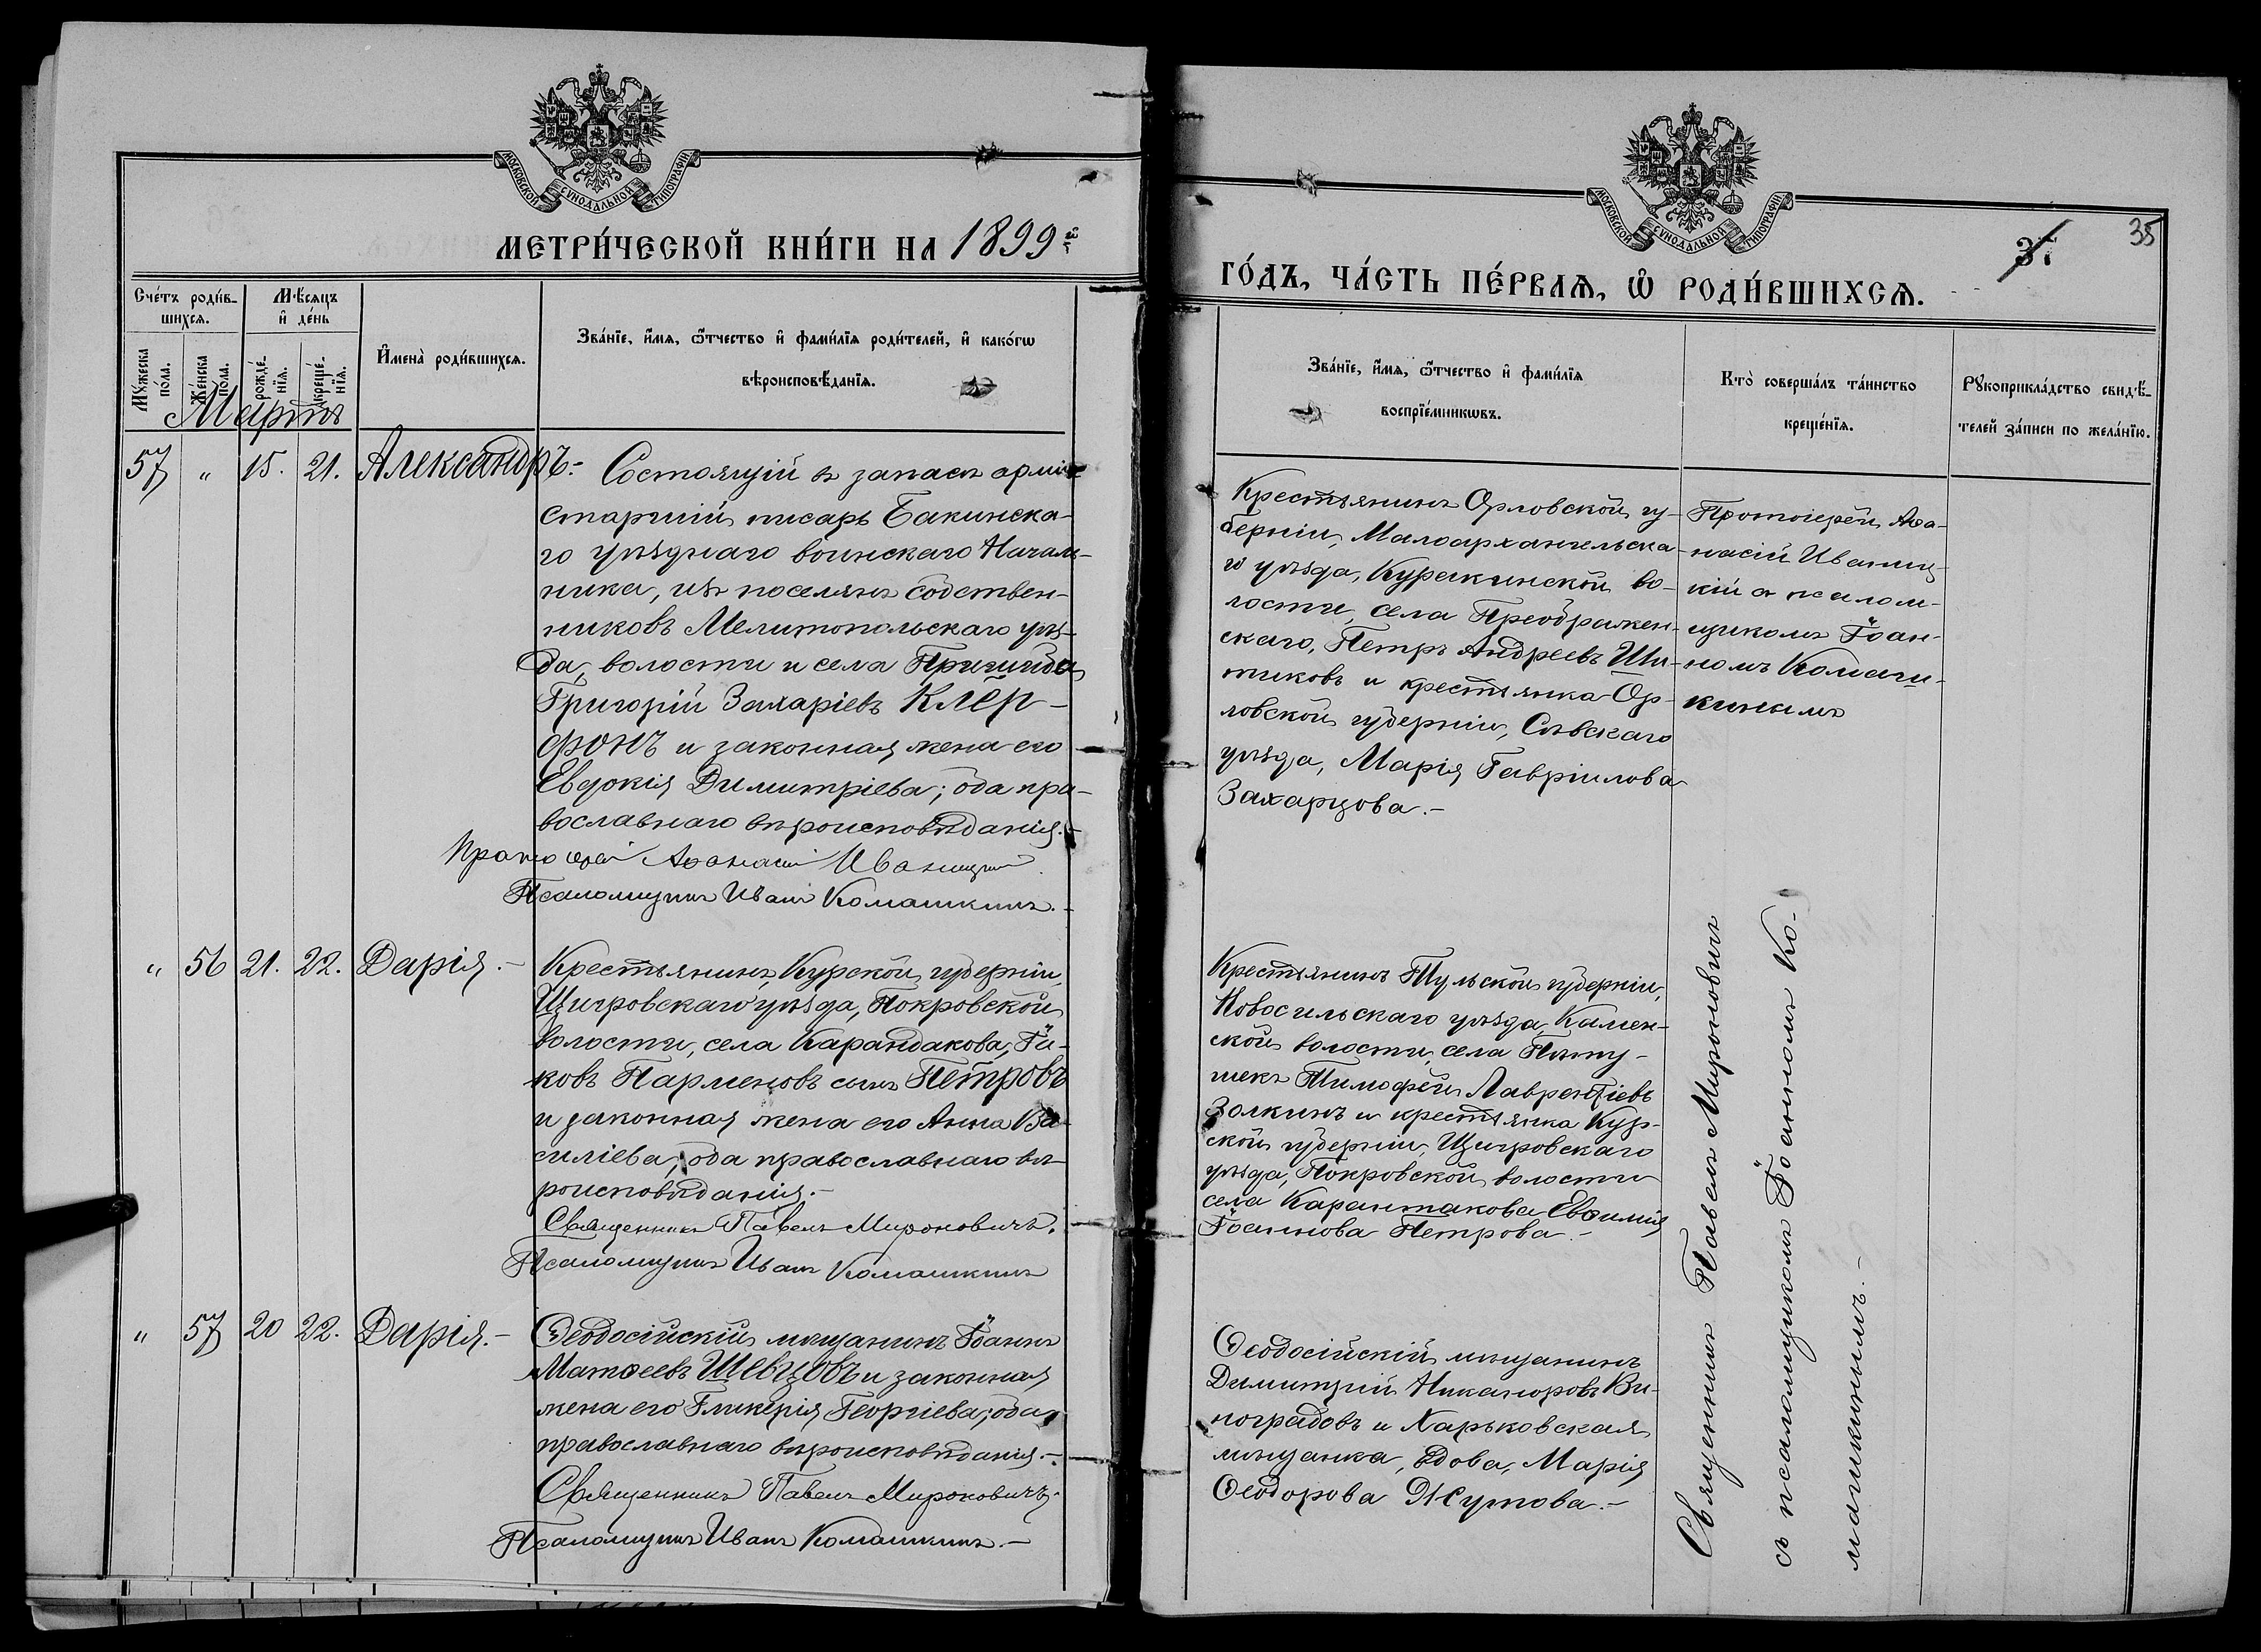 МОСКОВСКОЙ СѴНОДАЛЬНОЙ ТИПОГРАФІИ
МЕТРИ́ЧЕСКОЙ КНИ́ГИ НА 1899 й
Сче́тъ роди́в-
шихся.
Мѣ́сяцъ
и҆ де́нь
Мꙋ́жеска
по́ла.
Же́нска
по́ла.
рожде́-
нїя.
креще́-
нїя.
И҆мена̀ роди́вшихся.
Зва́нїе, и҆́мя, ѻ҆́тчество и҆ фами́лїя роди́телей, и҆ како́гѡ
вѣроисповѣ́данїя.
Мартъ
57 " 15. 21. Александръ.-
Состоящій въ запасѣ арміи
старшій писарь Бакинска-
го уѣзднаго воинскаго Началь-
ника, изъ поселянъ собствен-
никовъ Мелитопольскаго уѣз-
да, волости и села Пришиба
Григорій Захаріевъ Клеп-
фонъ и законная жена его
Евдокія Димитріева; оба пра-
вославнаго вѣроисповѣданія.-
Протоіерей Аѳанасій Иваницкій.
Псаломщикъ Иванъ Комашкинъ.-
" 56 21. 22. Дарія.-
Крестьянинъ Курской губерніи,
Щигровскаго уѣзда, Покровской
волости, села Карандакова, Іа-
ковъ Парменовъ сынъ Петровъ
и законная жена его Анна Ва-
силіева; оба православнаго вѣ-
роисповѣданія.-
Священникъ Павелъ Мироновичъ.
Псаломщикъ Иванъ Комашкинъ
" 57 20 22. Дарія.-
Ѳеодосійскій мѣщанинъ Іоаннъ
Матѳеевъ Шевцовъ и законная
жена его Гликерія Георгіева; оба
православнаго вѣроисповѣданія.-
Священникъ Павелъ Мироновичъ.
Псаломщикъ Иванъ Комашкинъ.-
МОСКОВСКОЙ СѴНОДАЛЬНОЙ ТИПОГРАФІИ
35
ГО́ДЪ, ЧА́СТЬ ПЕ́РВАЯ, Ѡ҆ РОДИ́ВШИХСЯ.
Зва́нїе, и҆́мя, ѻ҆́тчество и҆ фами́лїя
воспрїе́мникѡвъ.
Кто̀ соверша́лъ та́инство
креще́нїя.
Рꙋкоприкла́дство свидѣ́-
телей за́писи по жела́нїю.
Крестьянинъ Орловской гу-
берніи, Малоархангельска-
го уѣзда, Куракинской во-
лости, села Преображен-
скаго, Петръ Андреевъ Ши-
тиковъ и крестьянка Ор-
ловской губерніи, Сѣвскаго
уѣзда, Марія Гавріилова
Захарцова.-
Протоіерей Аѳа-
насій Иваниц-
кій съ псалом-
щикомъ Іоан-
номъ Комаш-
кинымъ
Крестьянинъ Тульской губерніи,
Новосильскаго уѣзда, Камен-
ской волости, села Пѣту-
шекъ Тимофей Лаврентіевъ
Золкинъ и крестьянка Кур-
ской губерніи, Щигровскаго
уѣзда, Покровской волости
села Карантакова Евѳимія
Іоаннова Петрова.-
Ѳеодосійскій мѣщанинъ
Димитрій Никаноровъ Ви-
ноградовъ и Харьковская
мѣщанка, вдова, Марія
Ѳеодорова Жутова.-
Священникъ Павелъ Мироновичъ
съ псаломщикомъ Іоанномъ Ко-
машкинымъ.-